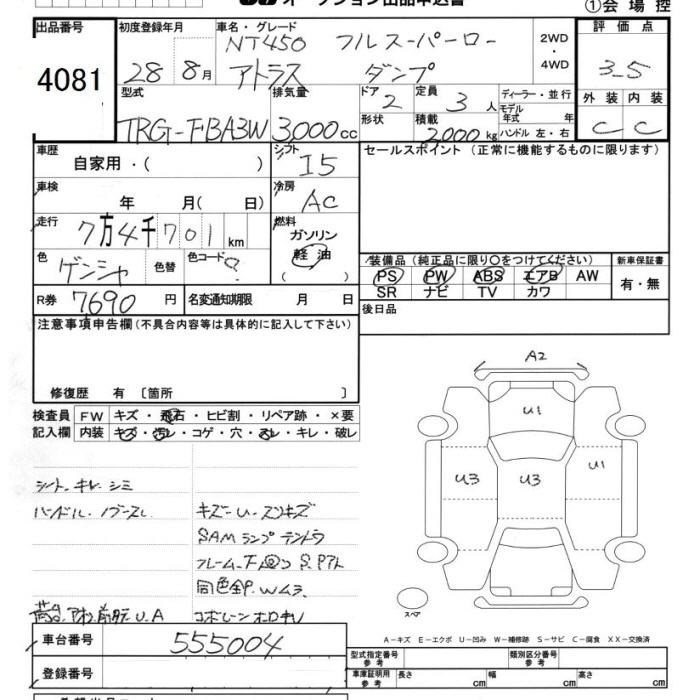 オークション出品申込書 ①会場控
出品番号 4081
初度登録年月 28 8月
車名・グレード NT450 フルスーパーロー
アトラス ダンプ
2WD・4WD
評価点 3.5
外装 C 内装 C
型式 TRG-FBA3W
排気量 3,000cc
ドア 2 定員 3人
形状 積載 2000kg
ディーラー・並行
モデル年式 年
ハンドル 左・右
車歴 自家用・( )
シフト I5
セールスポイント(正常に機能するものに限ります)
車検 年 月( 日)
冷房 AC
走行 7万4千701km
燃料 ガソリン
軽油
( )
色 ゲンシャ 色替 色コード
装備品(純正品に限り○をつけてください) 新車保証書
PS PW ABS エアB AW 有・無
SR ナビ TV カワ
R券 7690円 名変通知期限 月 日
後日品
注意事項申告欄(不具合内容等は具体的に記入して下さい)
修復歴 有 〔箇所 〕
検査員 FW キズ・飛石・ヒビ割・リペア跡・×要
記入欄 内装 キズ・汚レ・コゲ・穴・スレ・キレ・破レ
A2
U1
U3 U3 U1
シート. キレ. シミ
ハンドル.
キズー U. スリキズ
SAM ランプ テントウ
フレーム.下回
同色全P. Wムラ
U.A
スペア
A-キズ E-エクボ U-凹み W-補修跡 S-サビ C-腐食 XX-交換済
車台番号 555004
型式指定番号 参考 類別区分番号 参考
登録番号
車庫証明用 参考 長さ cm 幅 cm 高さ cm